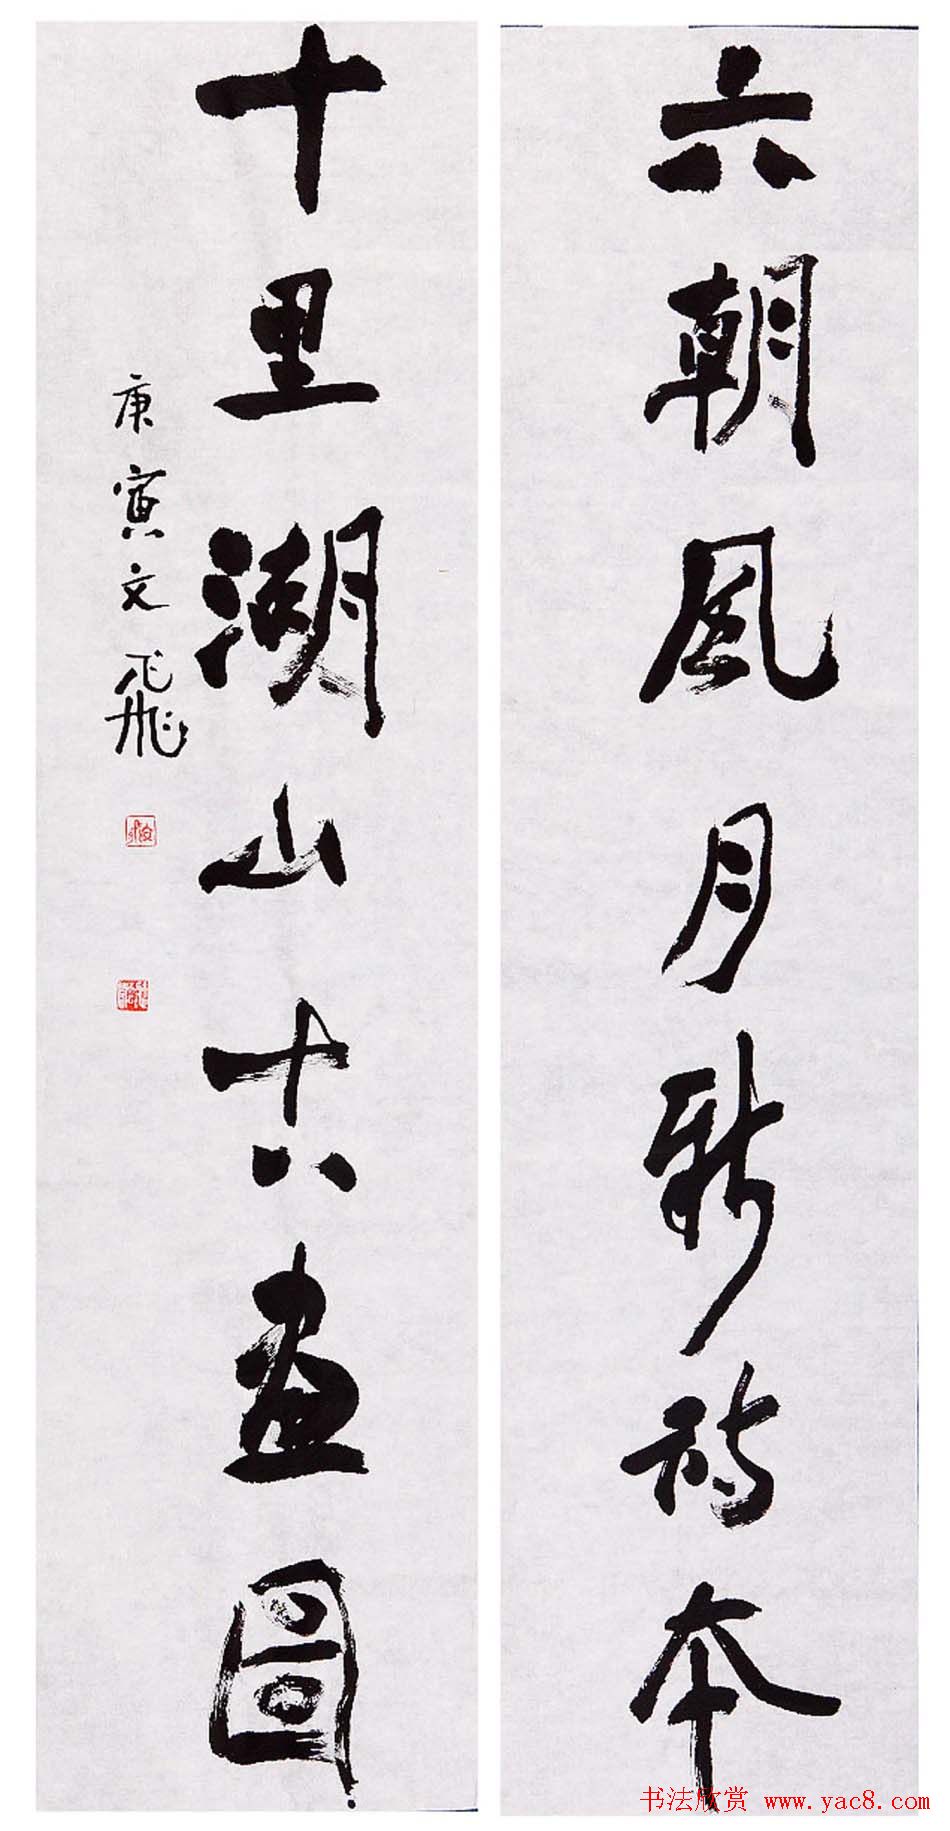 六朝風月新詩本
十里湖山真畫圖
庚寅文飛
书法欣赏 www.yac8.com